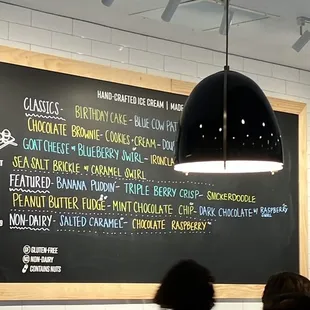 HAND-CRAFTED ICE CREAM | MADE
CLASSICS- BIRTHDAY CAKE- BLUE COW PAT
CHOCOLATE BROWNIE- COOKIES & CREAM- DOU
GOAT CHEESE w/ BLUEBERRY SWIRL- IRONCL
SEA SALT BRICKLE w/ CARAMEL SWIRL
FEATURED- BANANA PUDDIN- TRIPLE BERRY CRISP- SNICKERDOODLE
PEANUT BUTTER FUDGE- MINT CHOCOLATE CHIP- DARK CHOCOLATE w/ RASPBERRY
NON-DAIRY- SALTED CARAMEL- CHOCOLATE RASPBERRY
GLUTEN-FREE
NON-DAIRY
CONTAINS NUTS